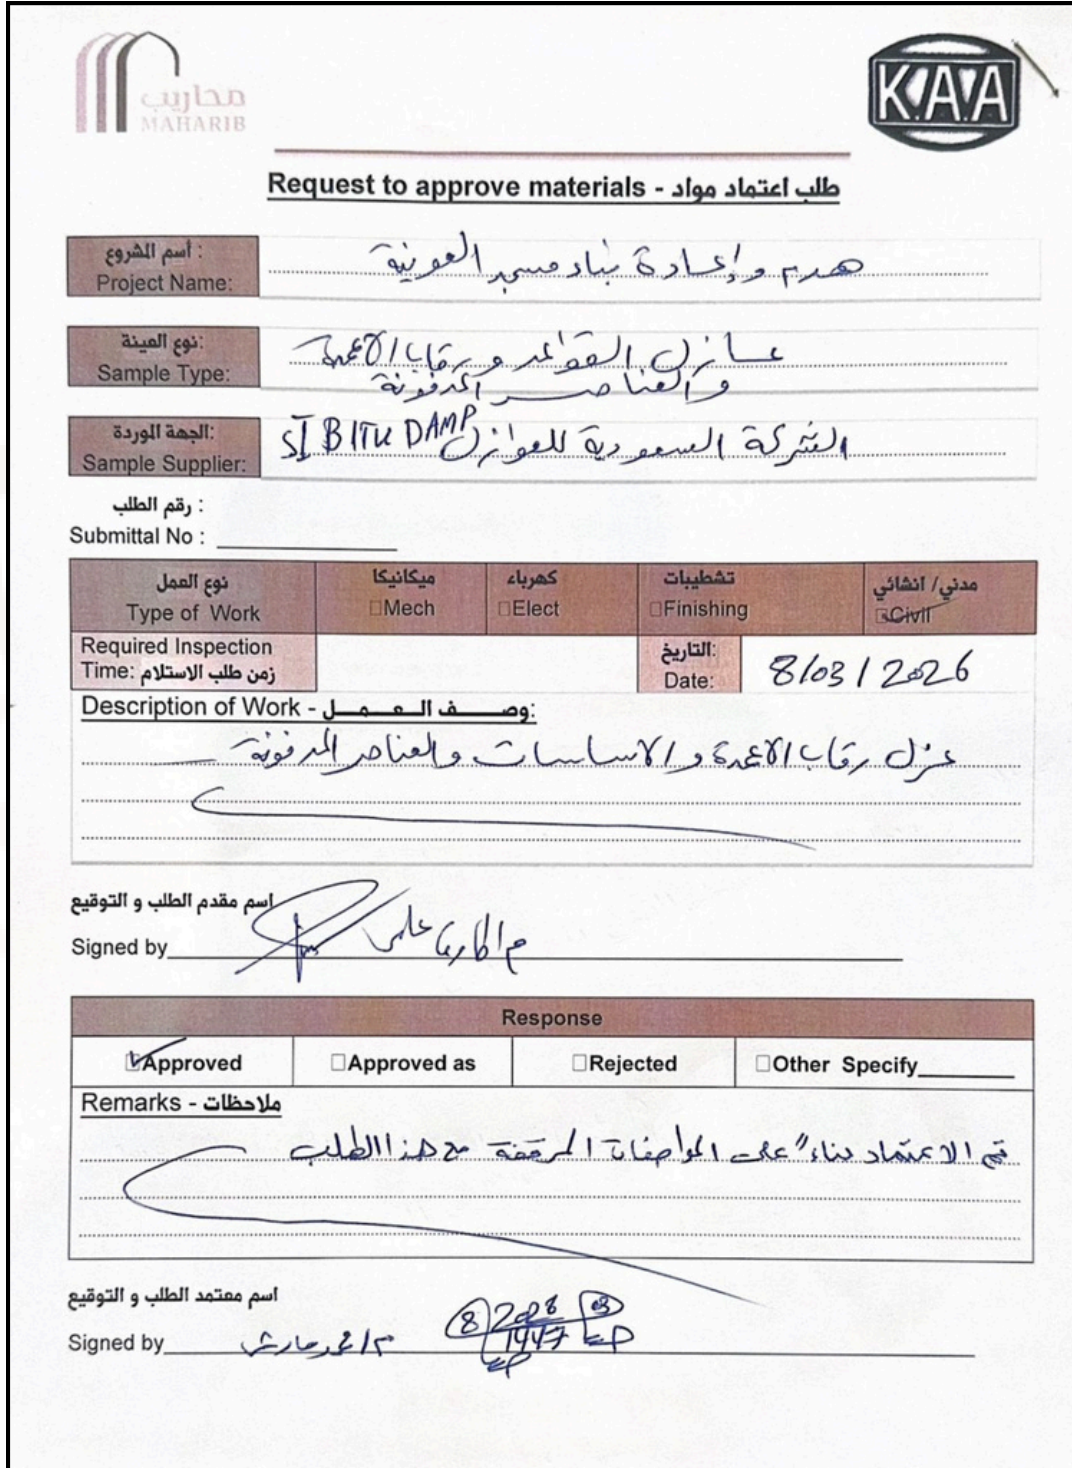 محاريب
MAHARIB
K.A.A
Request to approve materials - طلب اعتماد مواد
أسم المشروع :
Project Name:
هدم وإعادة بناء مسجد العوينة
نوع العينة:
Sample Type:
عازل القواعد ورقاب الأعمدة
والعناصر المدفونة
الجهة الموردة:
Sample Supplier:
الشركة السعودية للعوازل SI BITU DAMP
رقم الطلب :
Submittal No :
نوع العمل
Type of Work
ميكانيكا
Mech
كهرباء
Elect
تشطيبات
Finishing
مدني/ انشائي
Civil
Required Inspection
Time: زمن طلب الاستلام
التاريخ:
Date:
8/03/2026
Description of Work - وصف العمل:
عزل رقاب الاعمدة والاساسات والعناصر المدفونة
اسم مقدم الطلب و التوقيع
Signed by
علي
Response
Approved
Approved as
Rejected
Other Specify
Remarks - ملاحظات
تم الاعتماد بناءً على المواصفات المرفقة مع هذا الطلب
اسم معتمد الطلب و التوقيع
Signed by
8
03
1447